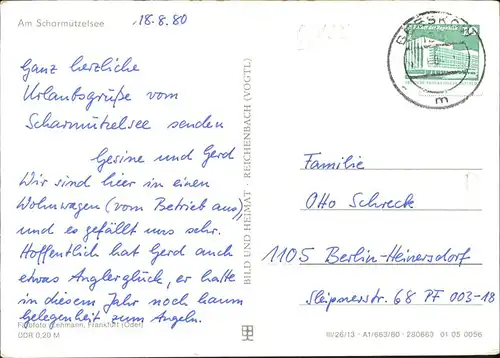 Am Scharmützelsee
18.8.80
Ganz herzliche
Urlaubsgrüße vom
Scharmützelsee senden
Gesine und Gerd
Wir sind hier in einen
Wohnwagen (vom Betrieb aus)
und es gefällt uns sehr.
Hoffentlich hat Gerd auch
etwas Anglerglück, er hatte
in diesem Jahr noch kaum
Gelegenheit zum Angeln.
Farbfoto Lehmann, Frankfurt (Oder)
DDR 0,20 M
BILD UND HEIMAT · REICHENBACH (VOGTL)
BEESKOW
m
Familie
Otto Schreck
1105 Berlin-Heinersdorf
Sleipnerstr. 68 PF 003-18
III/26/13 · A1/663/80 · 280663 01 05 0056